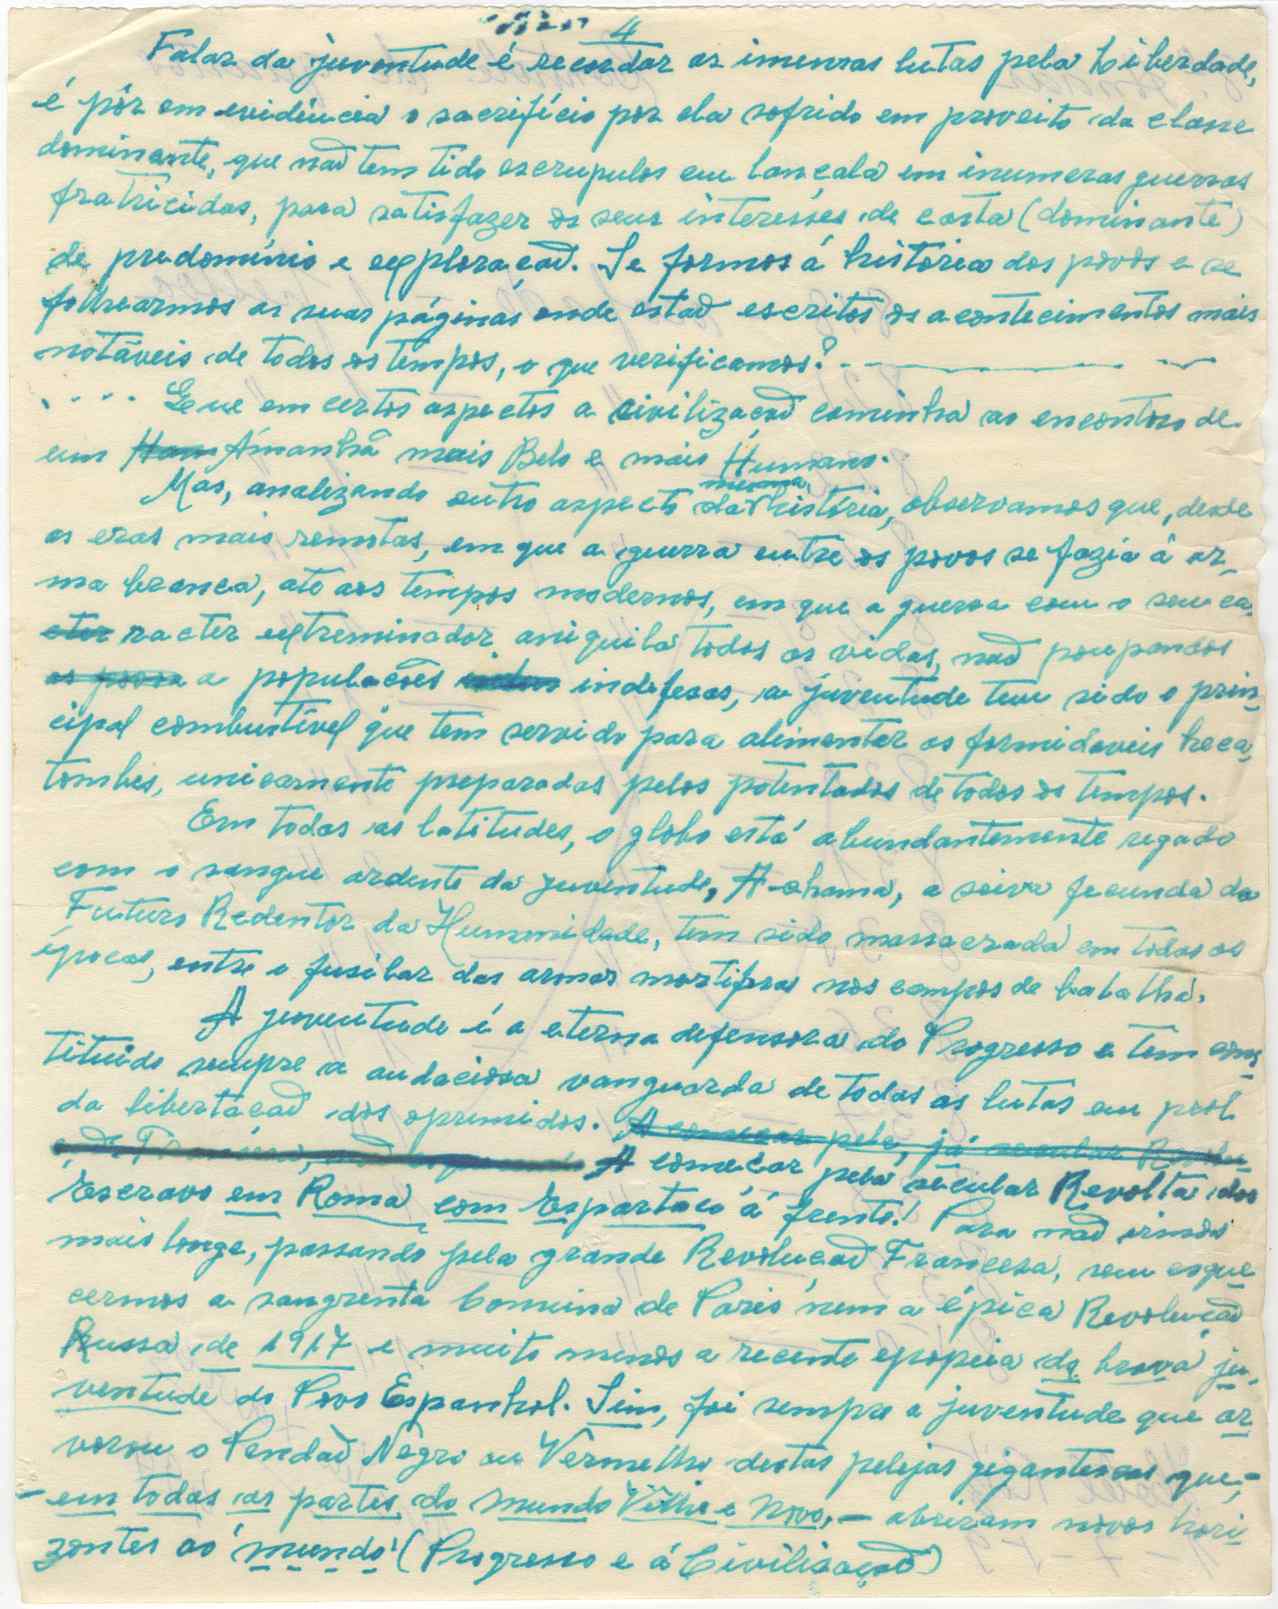 4
Falar da juventude é recordar as imensas lutas pela Liberdade,
é pôr em evidência o sacrifício por ela sofrido em proveito da classe
dominante, que não tem tido escrupulos em lançala em inumeras guerras
fratricidas, para satisfazer os seus interesses de casta (dominante)
de predomínio e exploração. Se formos á história dos povos e se
folhearmos as suas páginas onde estão escritos os acontecimentos mais
notáveis de todos os tempos, o que verificamos?
.... Que em certos aspectos a civilização caminha ao encontro de
um Amanhã mais Belo e mais Humano.
Mas, analizando outro aspecto da mesma história, observamos que, desde
as eras mais remotas, em que a guerra entre os povos se fazia á ar-
ma branca, até aos tempos modernos, em que a guerra com o seu ca-
racter extreminador aniquila todas as vidas, não poupando
a populações indefesas, a juventude tem sido o prin-
cipal combustível que tem servido para alimentar as formidáveis heca-
tombes, unicamente preparadas pelos potentados de todos os tempos.
Em todas as latitudes, o globo está abundantemente regado
com o sangue ardente da juventude, A chama, a seiva fecunda do
Futuro Redentor da Humanidade, tem sido massacrada em todas as
épocas, entre o fusilar das armas mortiferas nos campos de batalha.
A juventude é a eterna defensora do Progresso e tem cons-
tituido sempre a audaciosa vanguarda de todas as lutas em prol
da libertação dos oprimidos. A começar pela, já secular
A começar pela secular Revolta dos
Escravos em Roma com Espartaco á frente! Para não irmos
mais longe, passando pela grande Revolução Francesa, sem esque
cermos a sangrenta Comuna de Paris nem a épica Revolução
Russa de 1917 e muito menos a recente epopeia da brava ju-
ventude do Povo Espanhol. Sim, foi sempre a juventude que ar
vorou o Pendão Nêgro ou Vermelho destas pelejas gigantescas que,-
-em todas as partes do mundo Vélho e Novo,- abriram novos hori
zontes ao mundo (Progresso e á Civilisação)